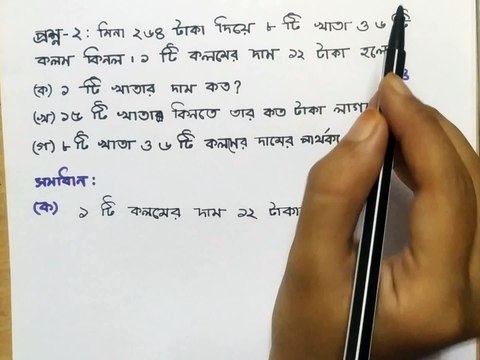 প্রশ্ন-২: মিনা ২৬৪ টাকা দিয়ে ৮ টি খাতা ও ৬ টি
কলম কিনল। ১ টি কলমের দাম ১২ টাকা হলে
(ক) ১ টি খাতার দাম কত?
(খ) ১৫ টি খাতা কিনতে তার কত টাকা
(গ) ৮ টি খাতা ও ৬ টি কলমের দামের পার্থক্য
সমাধান:
(ক) ১ টি কলমের দাম ১২ টাকা